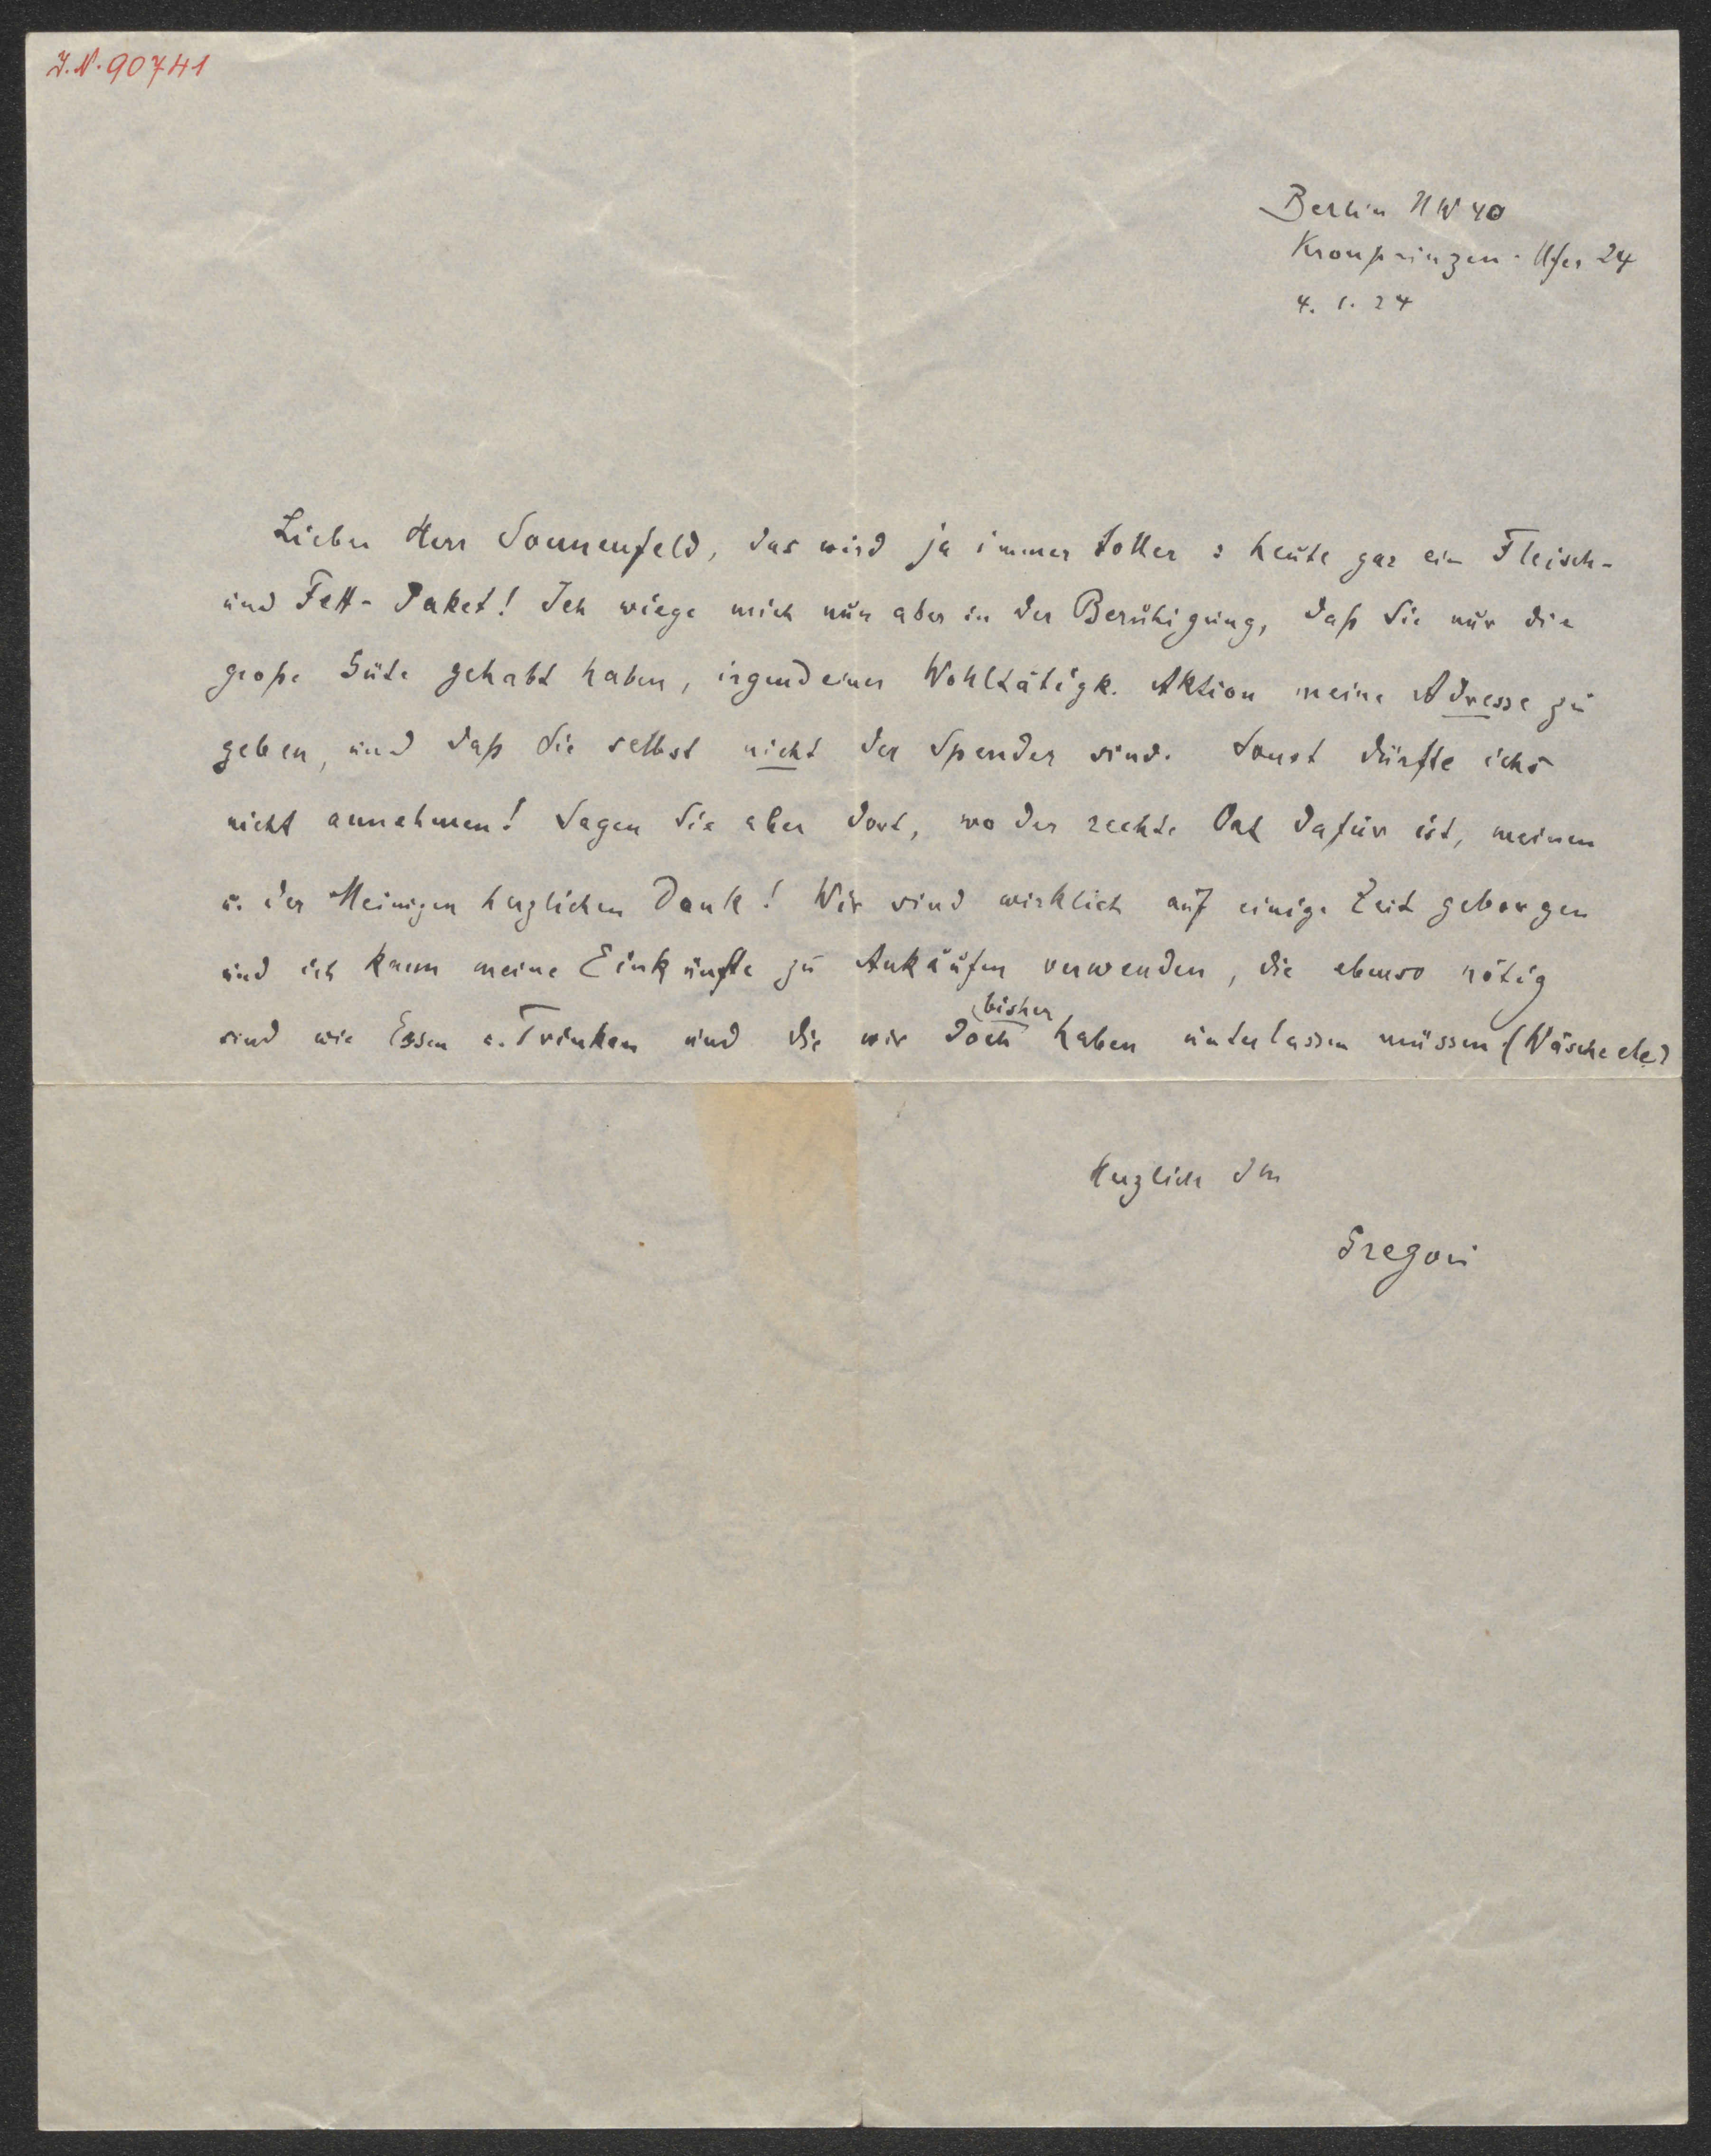 J.N. 90741
Berlin NW 40
Kronprinzen-Ufer 24
4. 1. 24
Lieber Herr Sonnenfeld, das wird ja immer toller: heute gar ein Fleisch-
und Fett-Paket! Ich wiege mich nun aber in der Beruhigung, daß Sie nur die
große Güte gehabt haben, irgendeiner Wohltätigk. Aktion meine Adresse zu
geben, und daß Sie selbst nicht der Spender sind. Sonst dürfte ichs
nicht annehmen! Sagen Sie aber dort, wo der rechte Ort dafür ist, meinen
u. der Meinigen herzlichen Dank! Wir sind wirklich auf einige Zeit geborgen
und ich kann meine Einkünfte zu Ankäufen verwenden, die ebenso nötig
bisher
sind wie Essen u. Trinken und die wir doch haben unterlassen müssen (Wäsche etc)
Herzlich Ihr
Gregori